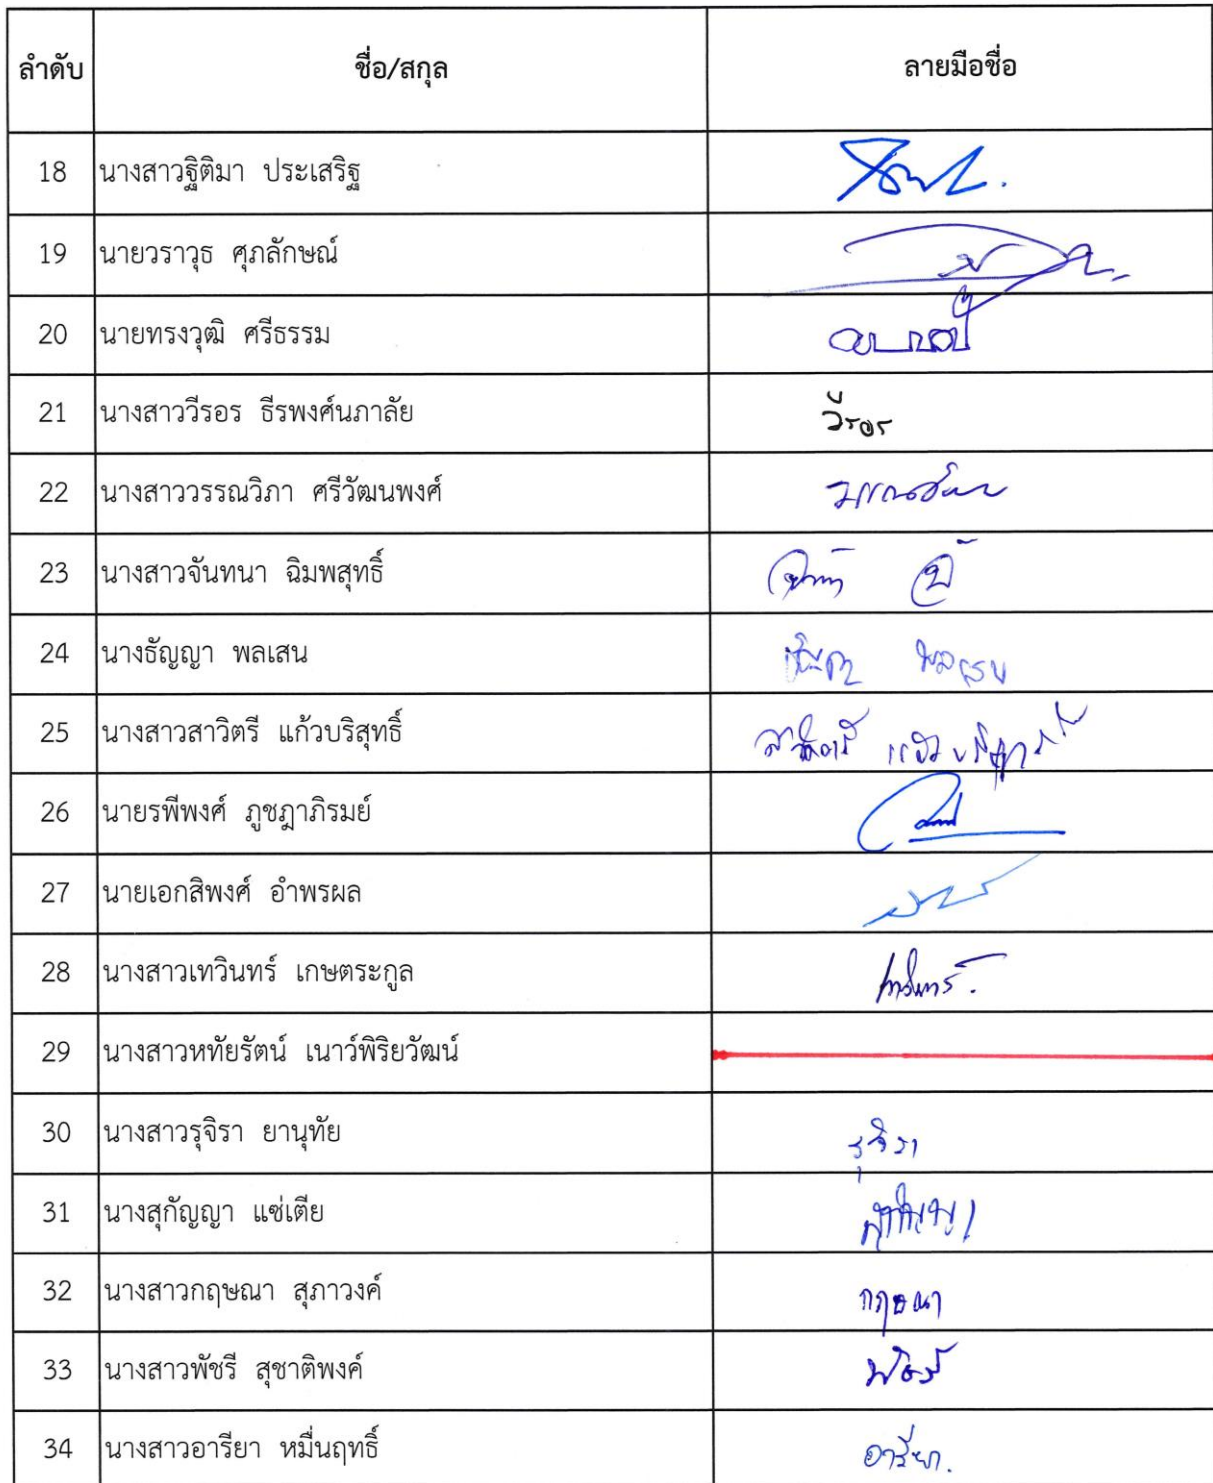 ลำดับ ชื่อ/สกุล ลายมือชื่อ
18 นางสาวฐิติมา ประเสริฐ
19 นายวราวุธ ศุภลักษณ์
20 นายทรงวุฒิ ศรีธรรม
21 นางสาววีรอร ธีรพงศ์นภาลัย วีรอร
22 นางสาววรรณวิภา ศรีวัฒนพงศ์
23 นางสาวจันทนา ฉิมพสุทธิ์
24 นางธัญญา พลเสน
25 นางสาวสาวิตรี แก้วบริสุทธิ์ สาวิตรี แก้วบริสุทธิ์
26 นายรพีพงศ์ ภูชฎาภิรมย์
27 นายเอกสิพงศ์ อำพรผล
28 นางสาวเทวินทร์ เกษตระกูล เทวินทร์.
29 นางสาวหทัยรัตน์ เนาว์พิริยวัฒน์
30 นางสาวรุจิรา ยานุทัย รุจิรา
31 นางสุกัญญา แซ่เตีย สุกัญญา
32 นางสาวกฤษณา สุภาวงค์ กฤษณา
33 นางสาวพัชรี สุชาติพงค์ พัชรี
34 นางสาวอารียา หมื่นฤทธิ์ อารียา.